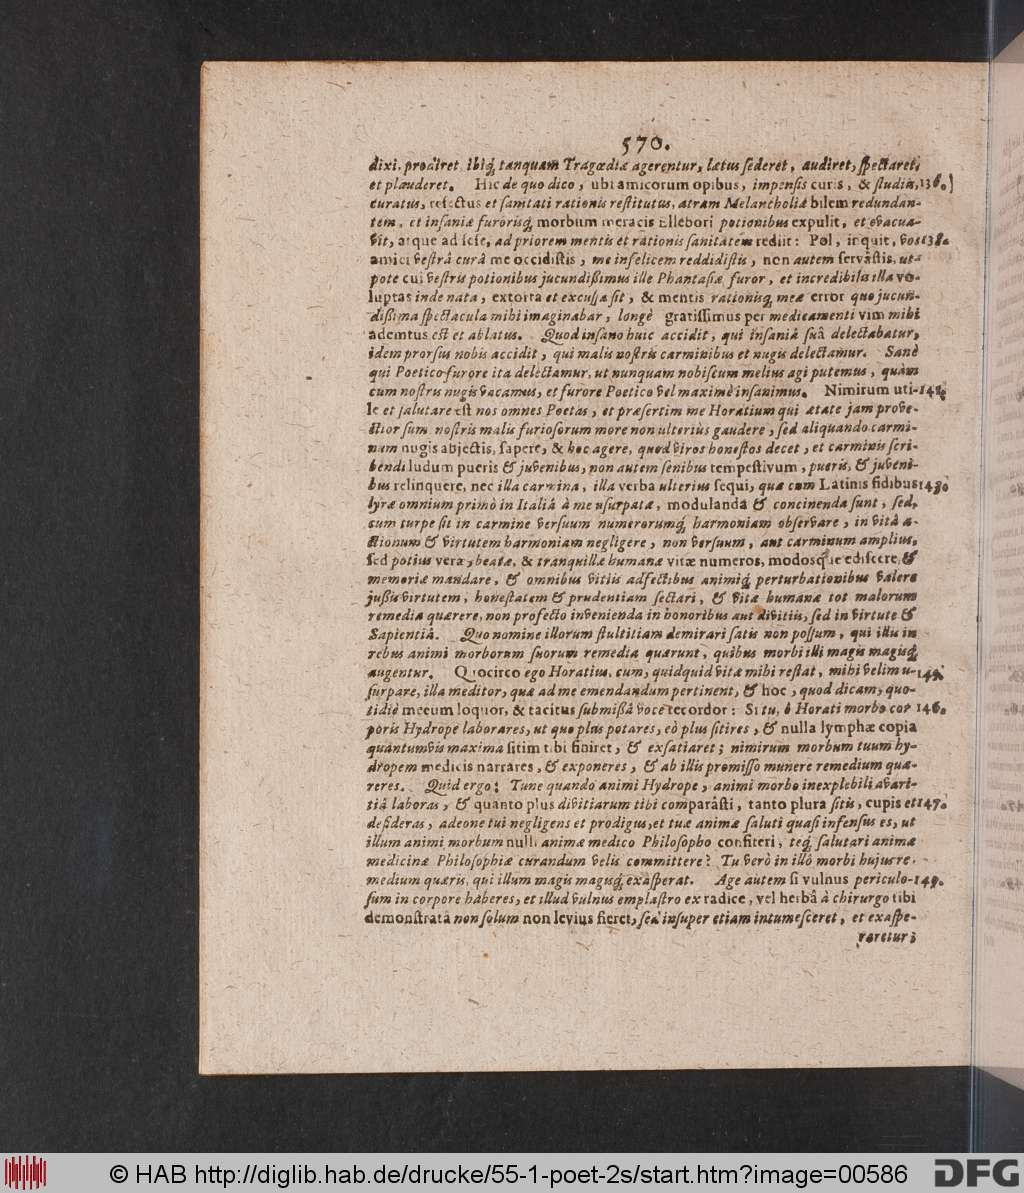 570.
dixi, prodiret ibiq́; tanquam Tragœdiæ agerentur, lætus ſederet, audiret, ſpectaret,
et plauderet. Hic de quo dico, ubi amicorum opibus, impenſis curis, & ſtudiis, 136.)
curatus, refectus et ſanitati rationis reſtitutus, atram Melancholiæ bilem redundan-
tem, et inſaniæ furorisq́; morbum meracis Ellebori potionibus expulit, et evacua-
vit, atque ad ſeſe, ad priorem mentis et rationis ſanitatem rediit: Pol, inquit, vos 138.
amici veſtrâ curâ me occidiſtis, me infelicem reddidiſtis, non autem ſervâſtis, ut-
pote cui veſtris potionibus jucundiſſimus ille Phantaſiæ furor, et incredibilis illa vo-
luptas inde nata, extorta et excuſſa ſit, & mentis rationisq́; meæ error quo jucun-
diſſima ſpectacula mihi imaginabar, longè gratiſſimus per medicamenti vim mihi
ademtus eſt et ablatus. Quod inſano huic accidit, qui inſaniâ ſuâ delectabatur,
idem prorſus nobis accidit, qui malis noſtris carminibus et nugis delectamur. Sanè
qui Poetico furore ita delectamur, ut nunquam nobiſcum melius agi putemus, quàm
cum noſtris nugis vacamus, et furore Poetico vel maximè inſanimus. Nimirum uti- 141.
le et ſalutare eſt nos omnes Poetas, et præſertim me Horatium qui ætate jam prove-
ctior ſum noſtris malis furioſorum more non ulteriùs gaudere, ſed aliquando carmi-
num nugis abjectis, ſapere, & hoc agere, quod viros honeſtos decet, et carminis ſcri-
bendi ludum pueris & juvenibus, non autem ſenibus tempeſtivum, pueris, & juveni-
bus relinquere, nec illa carmina, illa verba ulterius ſequi, quæ cum Latinis fidibus 143.
lyræ omnium primò in Italiâ à me uſurpatæ, modulanda & concinenda ſunt, ſed,
cum turpe ſit in carmine verſuum numerorumq́; harmoniam obſervare, in vitâ a-
ctionum & virtutem harmoniam negligere, non verſuum, aut carminum amplius,
ſed potius veræ, beatæ, & tranquillæ humanæ vitæ numeros, modosque ediſcere, &
memoriæ mandare, & omnibus vitiis adfectibus animiq́; perturbationibus valere
juſſis virtutem, honeſtatem & prudentiam ſectari, & vitæ humanæ tot malorum
remedia quærere, non profecto invenienda in honoribus aut divitiis, ſed in virtute &
Sapientiâ. Quo nomine illorum ſtultitiam demirari ſatis non poſſum, qui illis in
rebus animi morborum ſuorum remedia quærunt, quibus morbi illi magis magisq́;
augentur. Quocirco ego Horatius, cum, quidquid vitæ mihi reſtat, mihi velim u- 145.
ſurpare, illa meditor, quæ ad me emendandum pertinent, & hoc, quod dicam, quo-
tidiè mecum loquor, & tacitus ſubmiſſâ voce recordor: Si tu, ô Horati morbo cor 146.
poris Hydrope laborares, ut quo plus potares, eò plus ſitires, & nulla lymphæ copia
quantumvis maxima ſitim tibi finiret, & exſatiaret; nimirum morbum tuum hy-
dropem medicis narrares, & exponeres, & ab illis promiſſo munere remedium quæ-
reres. Quid ergo? Tune quando animi Hydrope, animi morbo inexplebili avari-
tiâ laboras, & quanto plus divitiarum tibi comparâſti, tanto plura ſitis, cupis et 147.
deſideras, adeone tui negligens et prodigus, et tuæ animæ ſaluti quaſi infenſus es, ut
illum animi morbum nulli animæ medico Philoſopho confiteri, teq́; ſalutari animæ
medicinæ Philoſophiæ curandum velis committere? Tu verò in illò morbi hujus re-
medium quæris, qui illum magis magisq́; exaſperat. Age autem ſi vulnus periculo- 149.
ſum in corpore haberes, et illud vulnus emplaſtro ex radice, vel herbâ à chirurgo tibi
demonſtratâ non ſolum non levius fieret, ſed inſuper etiam intumeſceret, et exaſpe-
raretur;
© HAB http://diglib.hab.de/drucke/55-1-poet-2s/start.htm?image=00586
DFG